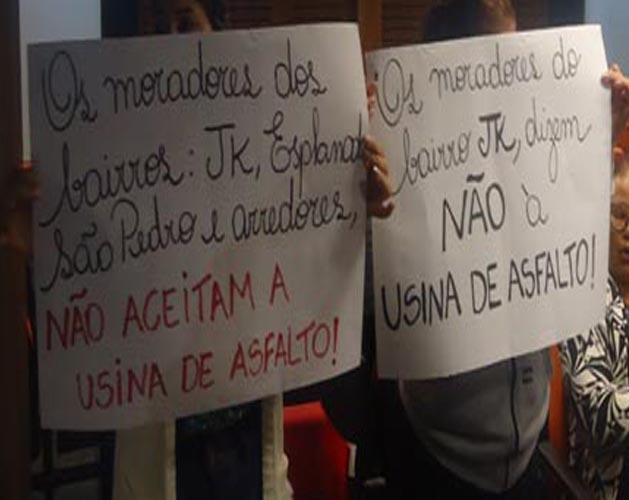 Os moradores dos
bairros: JK, Esplanada
São Pedro e arredores,
NÃO ACEITAM A
USINA DE ASFALTO!
Os moradores do
bairro JK, dizem
NÃO à
USINA DE ASFALTO!